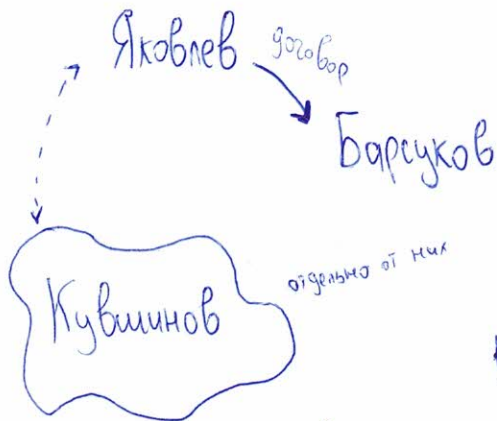 Яковлев
договор
Барсуков
Кувшинов
отдельно от них